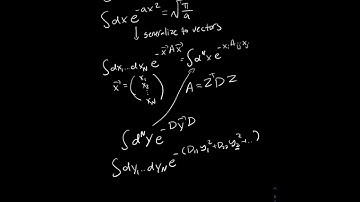 ∫dx e^{-ax²} = √(π/a)
↓ generalize to vectors
∫dx₁...dx_N e^{-x⃗Ax⃗} = ∫d^N x e^{-x_i A_{ij} x_j}
x⃗ = (x₁ x₂ ⋮ x_N)
A = Z^T D Z
∫d^N y e^{-Dy⃗D}
∫dy₁...dy_N e^{-(D₁₁y₁²+D₂₂y₂²+...)}